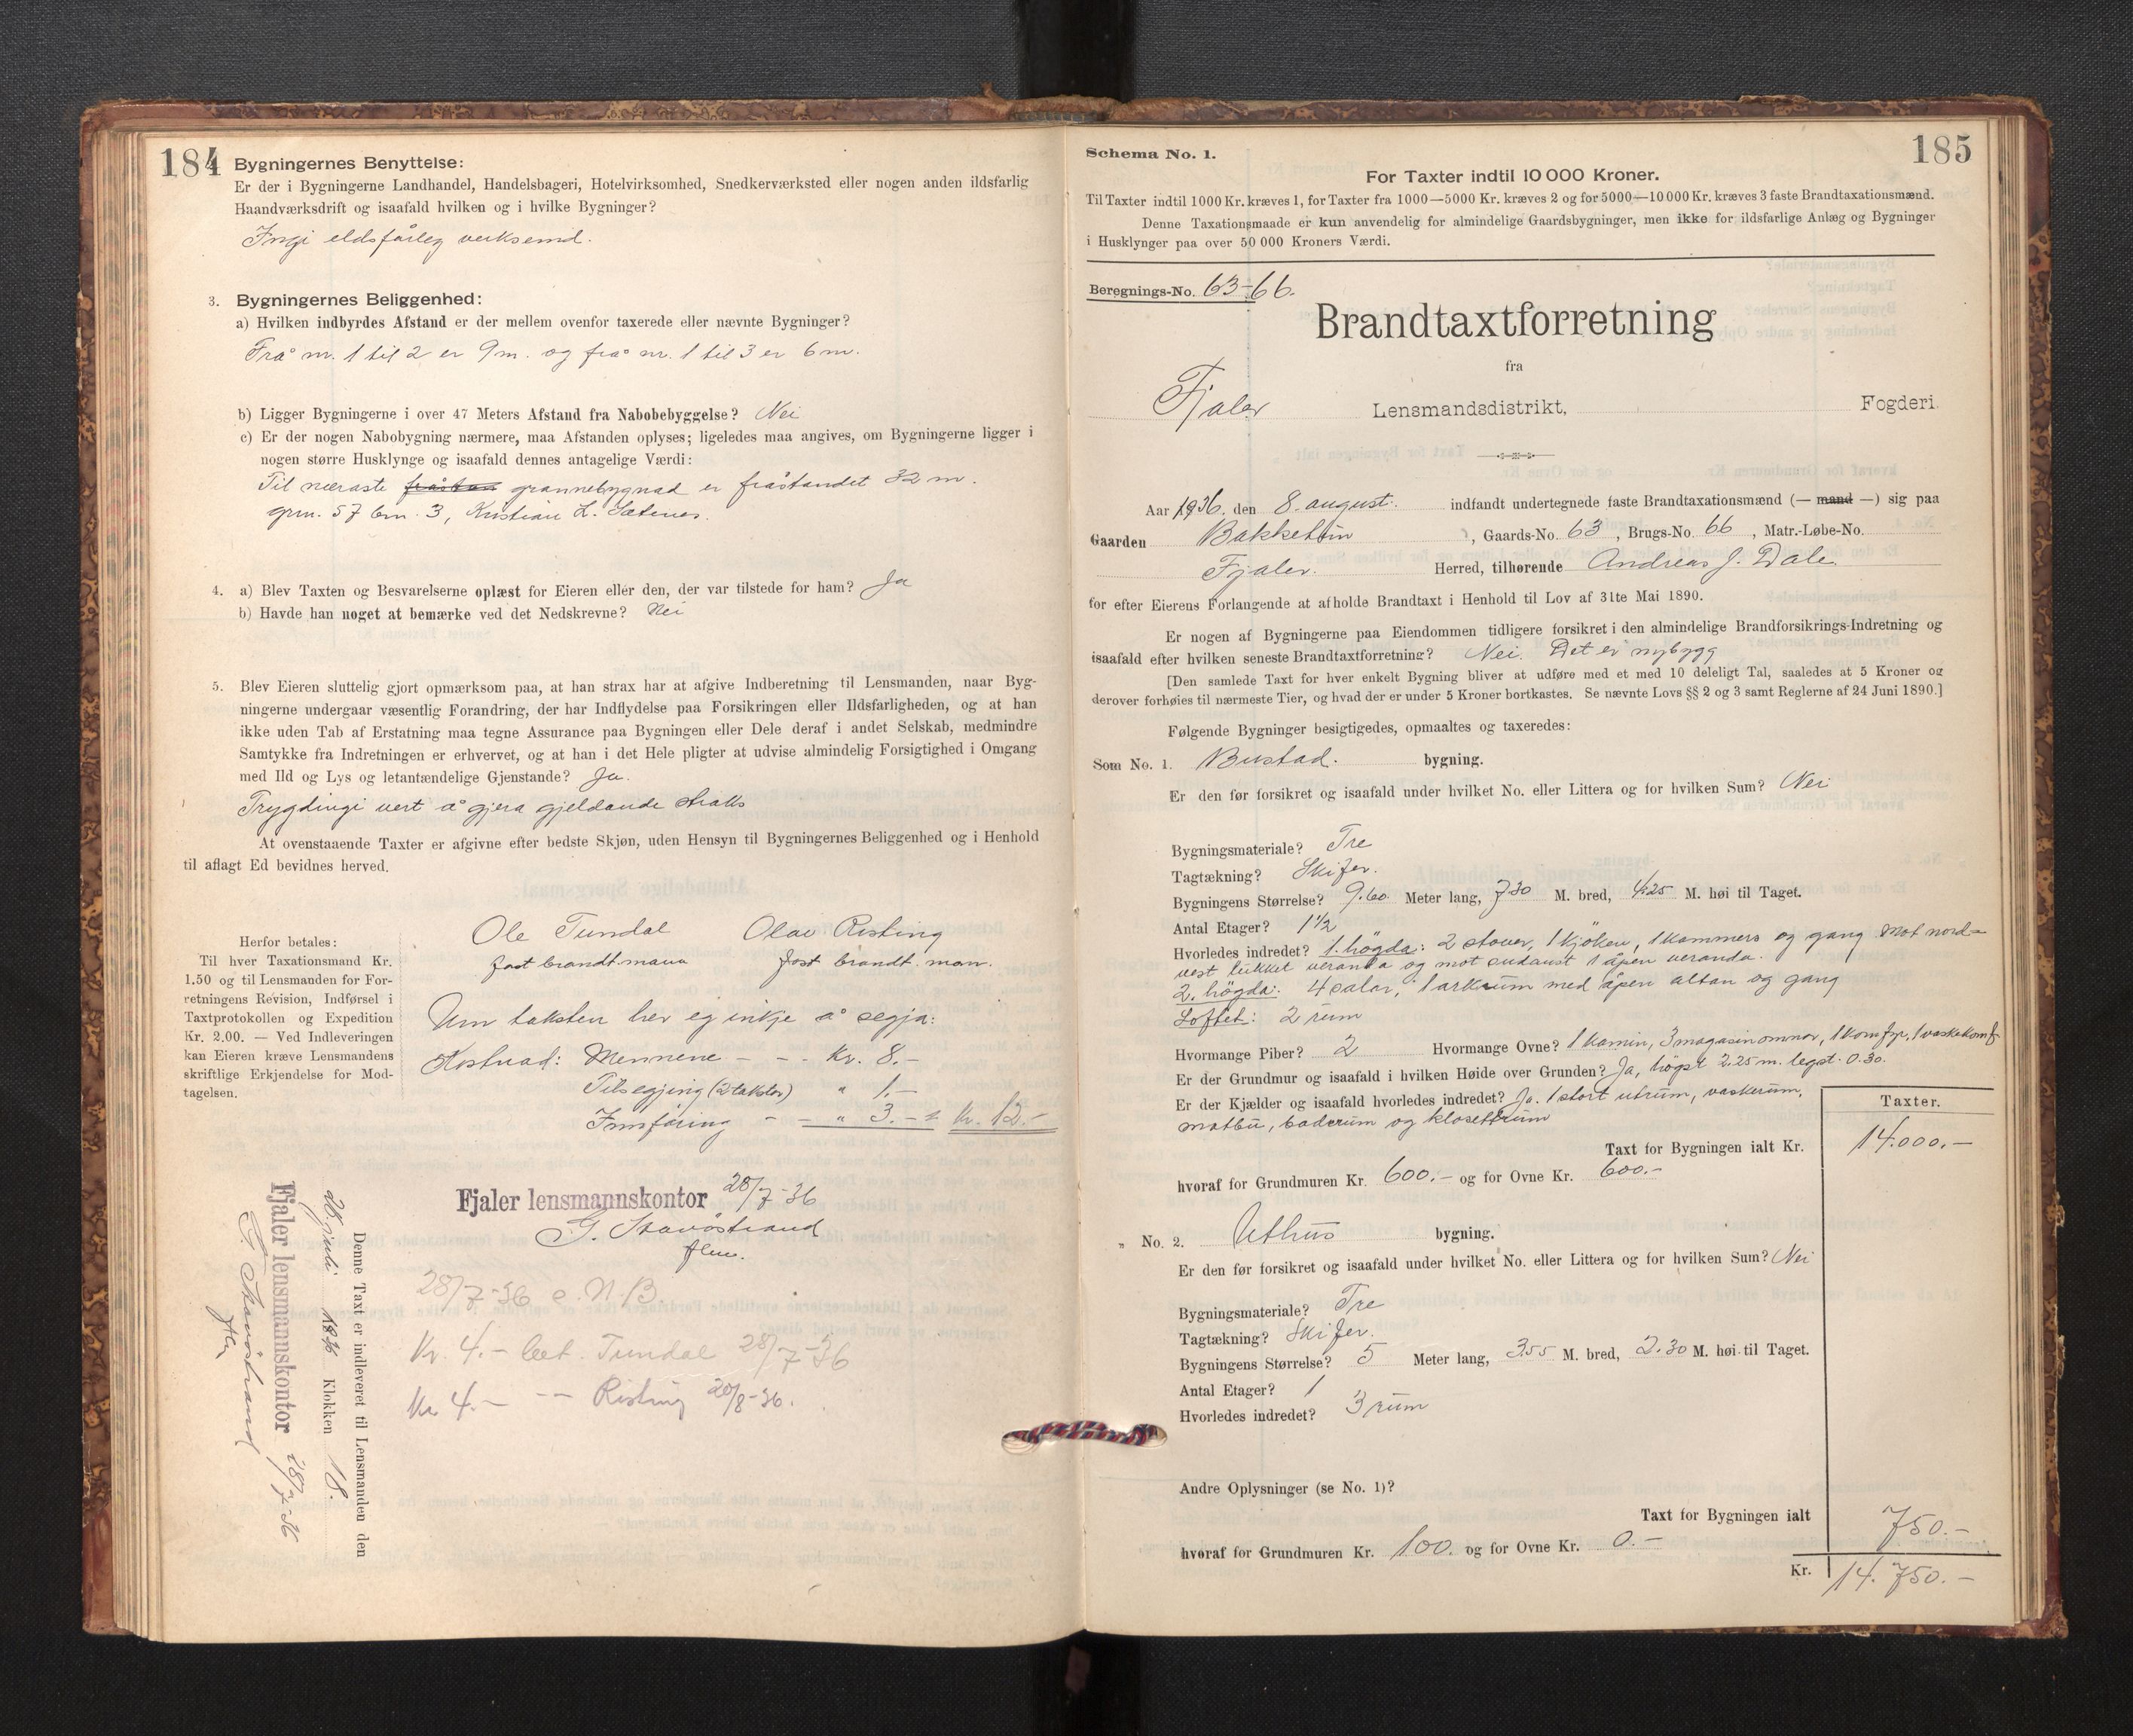 184
Bygningernes Benyttelse:
Er der i Bygningerne Landhandel, Handelsbageri, Hotelvirksomhed, Snedkerværksted eller nogen anden ildsfarlig
Haandværksdrift og isaafald hvilken og i hvilke Bygninger?
Ingi eldsfårleg verksemd.
3. Bygningernes Beliggenhed:
a) Hvilken indbyrdes Afstand er der mellem ovenfor taxerede eller nævnte Bygninger?
Frå nr. 1 til 2 er 9 m. og frå nr. 1 til 3 er 6 m.
b) Ligger Bygningerne i over 47 Meters Afstand fra Nabobebyggelse? Nei
c) Er der nogen Nabobygning nærmere, maa Afstanden oplyses; ligeledes maa angives, om Bygningerne ligger i
nogen større Husklynge og isaafald dennes antagelige Værdi:
Til næraste grannebygnad er fråstandet 32 m.
grn. 57 bn. 3, Kristian L. Sætenes.
4. a) Blev Taxten og Besvarelserne oplæst for Eieren eller den, der var tilstede for ham? Ja
b) Havde han noget at bemærke ved det Nedskrevne? Nei
5. Blev Eieren sluttelig gjort opmærksom paa, at han strax har at afgive Indberetning til Lensmanden, naar Byg-
ningerne undergaar væsentlig Forandring, der har Indflydelse paa Forsikringen eller Ildsfarligheden, og at han
ikke uden Tab af Erstatning maa tegne Assurance paa Bygningen eller Dele deraf i andet Selskab, medmindre
Samtykke fra Indretningen er erhvervet, og at han i det Hele pligter at udvise almindelig Forsigtighed i Omgang
med Ild og Lys og letantændelige Gjenstande? Ja.
Trygdingi vert å gjera gjeldande straks
At ovenstaaende Taxter er afgivne efter bedste Skjøn, uden Hensyn til Bygningernes Beliggenhed og i Henhold
til aflagt Ed bevidnes herved.
Ole Tundal Olav Risting
fast brandt.mann fast brandt.man.
Herfor betales:
Til hver Taxationsmand Kr.
1.50 og til Lensmanden for For-
retningens Revision, Indførsel i
Taxtprotokollen og Expedition
Kr. 2.00. — Ved Indleveringen
kan Eieren kræve Lensmandens
skriftlige Erkjendelse for Mod-
tagelsen.
Um taksten her eg inkje å segja:
Kostnad: Mennene - - - Kr. 8.-
Tilsegjing (2 takster) " 1.-
Innføring - - " 3.- = Kr. 12.-
Fjaler lensmannskontor 28/7-36
G. Stavøstrand
flm.
28/7-36 e. N.B.
Kr. 4.- bet. Tundal 28/7-36
Kr 4.- -- Risting 20/8-36.
Denne Taxt er indleveret til Lensmanden den
28. juli 1936 Klokken 18.
Fjaler lensmannskontor 28/7-36
G. Stavøstrand
flm
185
Schema No. 1.
For Taxter indtil 10 000 Kroner.
Til Taxter indtil 1000 Kr. kræves 1, for Taxter fra 1000—5000 Kr. kræves 2 og for 5000—10 000 Kr. kræves 3 faste Brandtaxationsmænd.
Denne Taxationsmaade er kun anvendelig for almindelige Gaardsbygninger, men ikke for ildsfarlige Anlæg og Bygninger
i Husklynger paa over 50 000 Kroners Værdi.
Beregnings-No. 63-66.
Brandtaxtforretning
fra
Fjaler Lensmandsdistrikt, Fogderi
Aar 1936. den 8. august. indfandt undertegnede faste Brandtaxationsmænd (— mand —) sig paa
Gaarden Bakketün, Gaards-No. 63, Brugs-No. 66, Matr.-Løbe-No.
Fjaler. Herred, tilhørende Andreas J. Dale.
for efter Eierens Forlangende at afholde Brandtaxt i Henhold til Lov af 31te Mai 1890.
Er nogen af Bygningerne paa Eiendommen tidligere forsikret i den almindelige Brandforsikrings-Indretning og
isaafald efter hvilken seneste Brandtaxtforretning? Nei. Det er nybygg
[Den samlede Taxt for hver enkelt Bygning bliver at udføre med et med 10 deleligt Tal, saaledes at 5 Kroner og
derover forhøies til nærmeste Tier, og hvad der er under 5 Kroner bortkastes. Se nævnte Lovs §§ 2 og 3 samt Reglerne af 24 Juni 1890.]
Følgende Bygninger besigtigedes, opmaaltes og taxeredes:
Som No. 1. Bustad. bygning.
Er den før forsikret og isaafald under hvilket No. eller Littera og for hvilken Sum? Nei
Bygningsmateriale? Tre
Tagtækning? Skifer.
Bygningens Størrelse? 9.60 Meter lang, 7.30 M. bred, 4.25 M. høi til Taget.
Antal Etager? 1½
Hvorledes indredet? 1. högda: 2 stover, 1 kjöken, 1 kammers og gang mot nord-
vest lukket veranda og mot sudaust 1 åpen veranda.
2. högda: 4 salar, 1 arkrum med åpen altan og gang
Loftet: 2 rum
Hvormange Piber? 2 Hvormange Ovne? 1 kamin, 3 magasinomnar, 1 komfyr, 1 vaskekomf.
Er der Grundmur og isaafald i hvilken Høide over Grunden? Ja, högst 2.25 m. legst. 0.30.
Er der Kjælder og isaafald hvorledes indredet? Ja. 1 stort utrum, vaskerum,
matbu, baderum og klosettrum
Taxter.
Taxt for Bygningen ialt Kr. 14.000.—
hvoraf for Grundmuren Kr. 600.- og for Ovne Kr. 600.-
" No. 2. Uthus bygning.
Er den før forsikret og isaafald under hvilket No. eller Littera og for hvilken Sum? Nei
Bygningsmateriale? Tre
Tagtækning? Skifer.
Bygningens Størrelse? 5 Meter lang, 3.55 M. bred, 2.30 M. høi til Taget.
Antal Etager? 1
Hvorledes indredet? 3 rum
Andre Oplysninger (se No. 1)?
Taxt for Bygningen ialt 750.—
hvoraf for Grundmuren Kr. 100. og for Ovne Kr. 0.-
Kr. 14.750.—